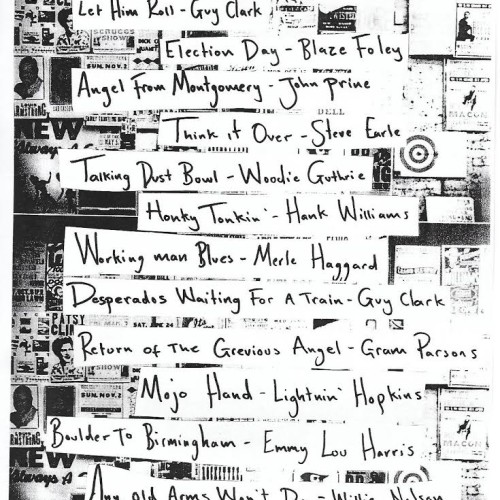 Let Him Roll - Guy Clark
Election Day - Blaze Foley
Angel From Montgomery - John Prine
Think it Over - Steve Earle
Talking Dust Bowl - Woodie Guthrie
Honky Tonkin' - Hank Williams
Working man Blues - Merle Haggard
Desperados Waiting For A Train - Guy Clark
Return of The Grevious Angel - Gram Parsons
Mojo Hand - Lightnin' Hopkins
Boulder To Birmingham - Emmy Lou Harris
Any old Arms Won't Do - Willie Nelson
SCRUGGS
SHOW
SUN. NOV. 2
NEW
Always A
DELL
MACON
PATSY
SAT.
SUN. NOV. 2
NEW
Always A
MACON